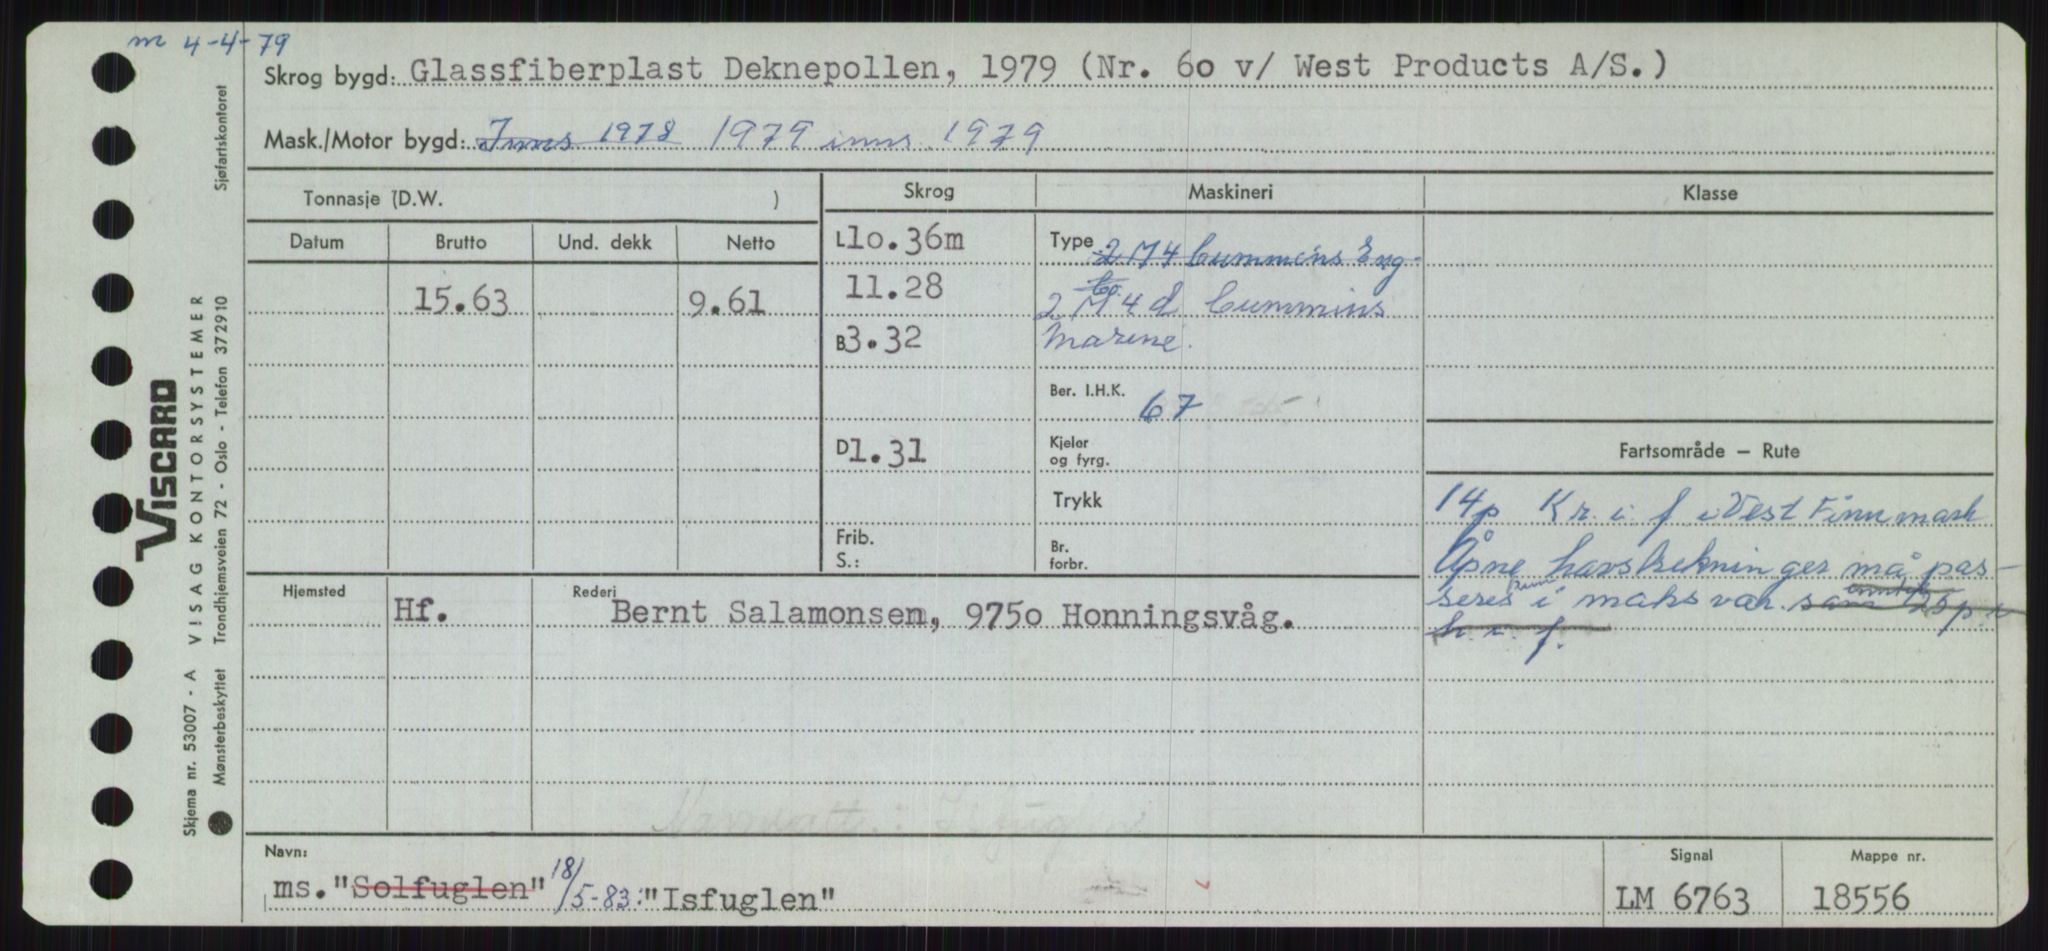 m 4-4-79
Skrog bygd: Glassfiberplast Deknepollen, 1979 (Nr. 6o v/ West Products A/S.)
Mask./Motor bygd: Inns 1978 1979 inns 1979
Tonnasje (D.W. )
Skrog
Maskineri
Klasse
Datum
Brutto
Und. dekk
Netto
15.63
9.61
L 1o.36m
11.28
B 3.32
D 1.31
Frib.
S.:
Type 2 M4 Cummins Eng.
Co.
2 M4 d Cummins
Marine.
Ber. I.H.K. 67
Kjeler
og fyrg.
Trykk
Br.
forbr.
Fartsområde – Rute
14p Kr. i. f i Vest Finnmark
Åpne havstrekninger må pas-
seres kun i maks var. som 25 p.
k. i. f.
Hjemsted
Rederi
Hf.
Bernt Salamonsen, 975o Honningsvåg.
Isfuglen
Navn:
ms. "Solfuglen" 18/5-83: "Isfuglen"
Signal
LM 6763
Mappe nr.
18556
VISCARD
Skjema nr. 53007 - A VISAG KONTORSYSTEMER
Mønsterbeskyttet Trondhjemsveien 72 - Oslo - Telefon 372910
Sjøfartskontoret